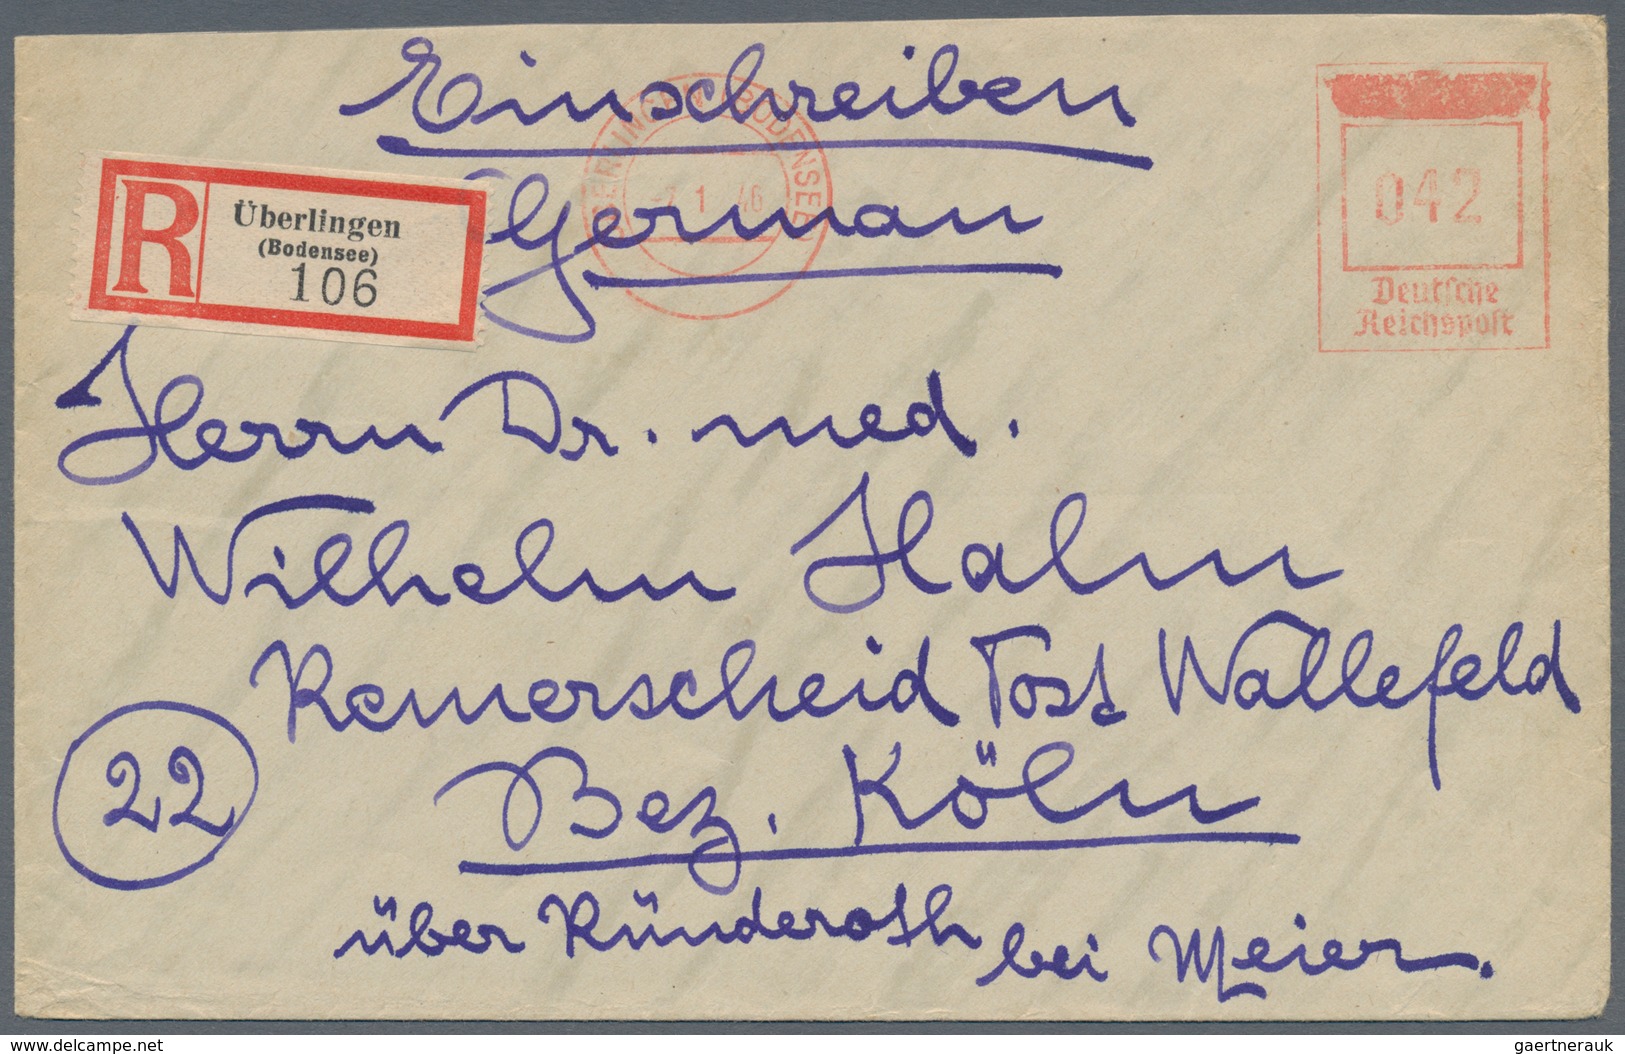 Einschreiben
German
ÜBERLINGEN (BODENSEE)
-2.1.46
R
Überlingen
(Bodensee)
106
042
Deutsche
Reichspost
Herrn Dr. med.
Wilhelm Halm
Remerscheid Post Wallefeld
22
Bez. Köln
über Ründeroth
bei Meier.
www.delcampe.net
gaertnerauk